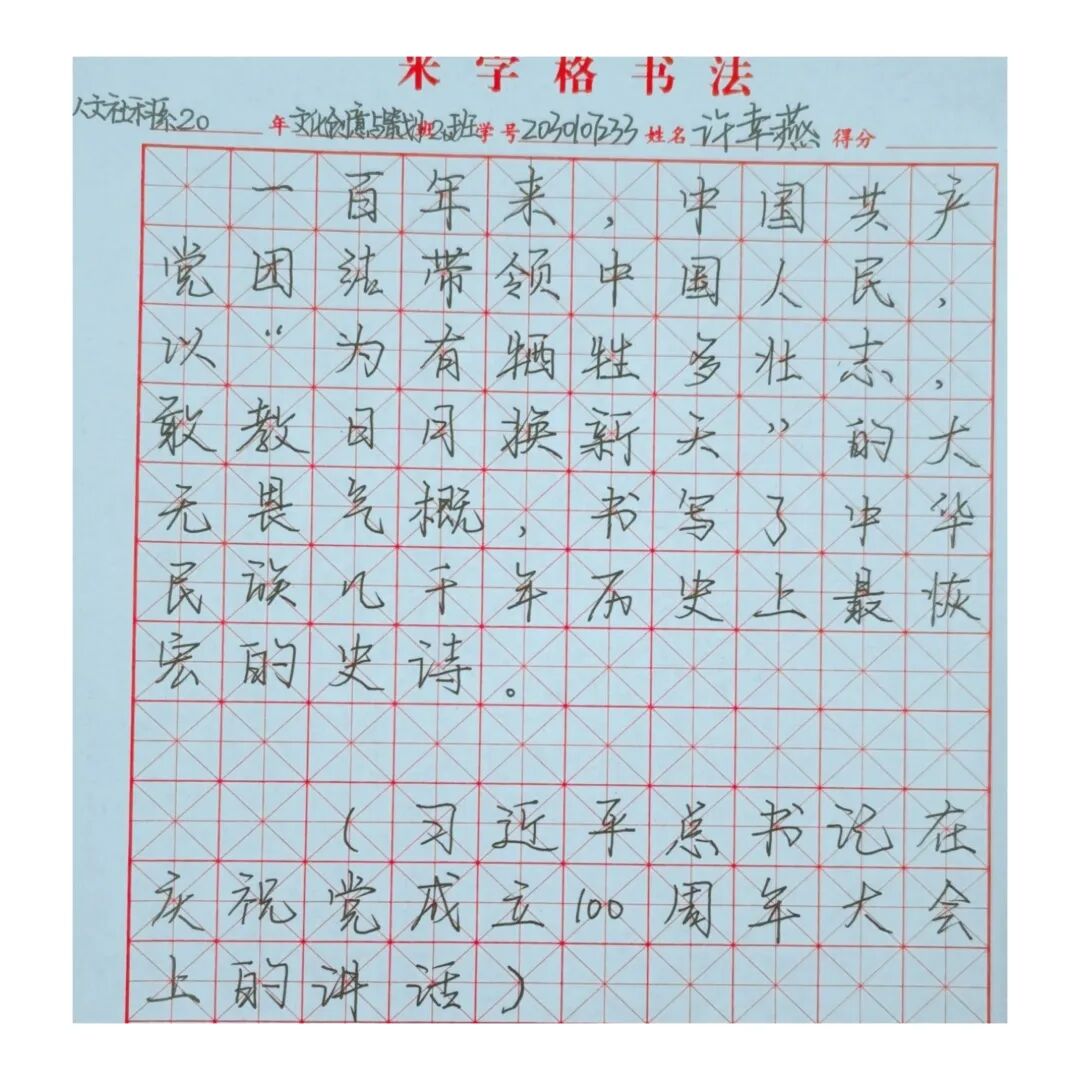 米字格书法
人文社科系20 年 文化创意与策划2班 学号 姓名 许幸燕 得分
一百年来,中国共产
党团结带领中国人民,
以“为有牺牲多壮志,
敢教日月换新天”的大
无畏气概,书写了中华
民族几千年历史上最恢
宏的史诗。
(习近平总书记在
庆祝党成立100周年大会
上的讲话)